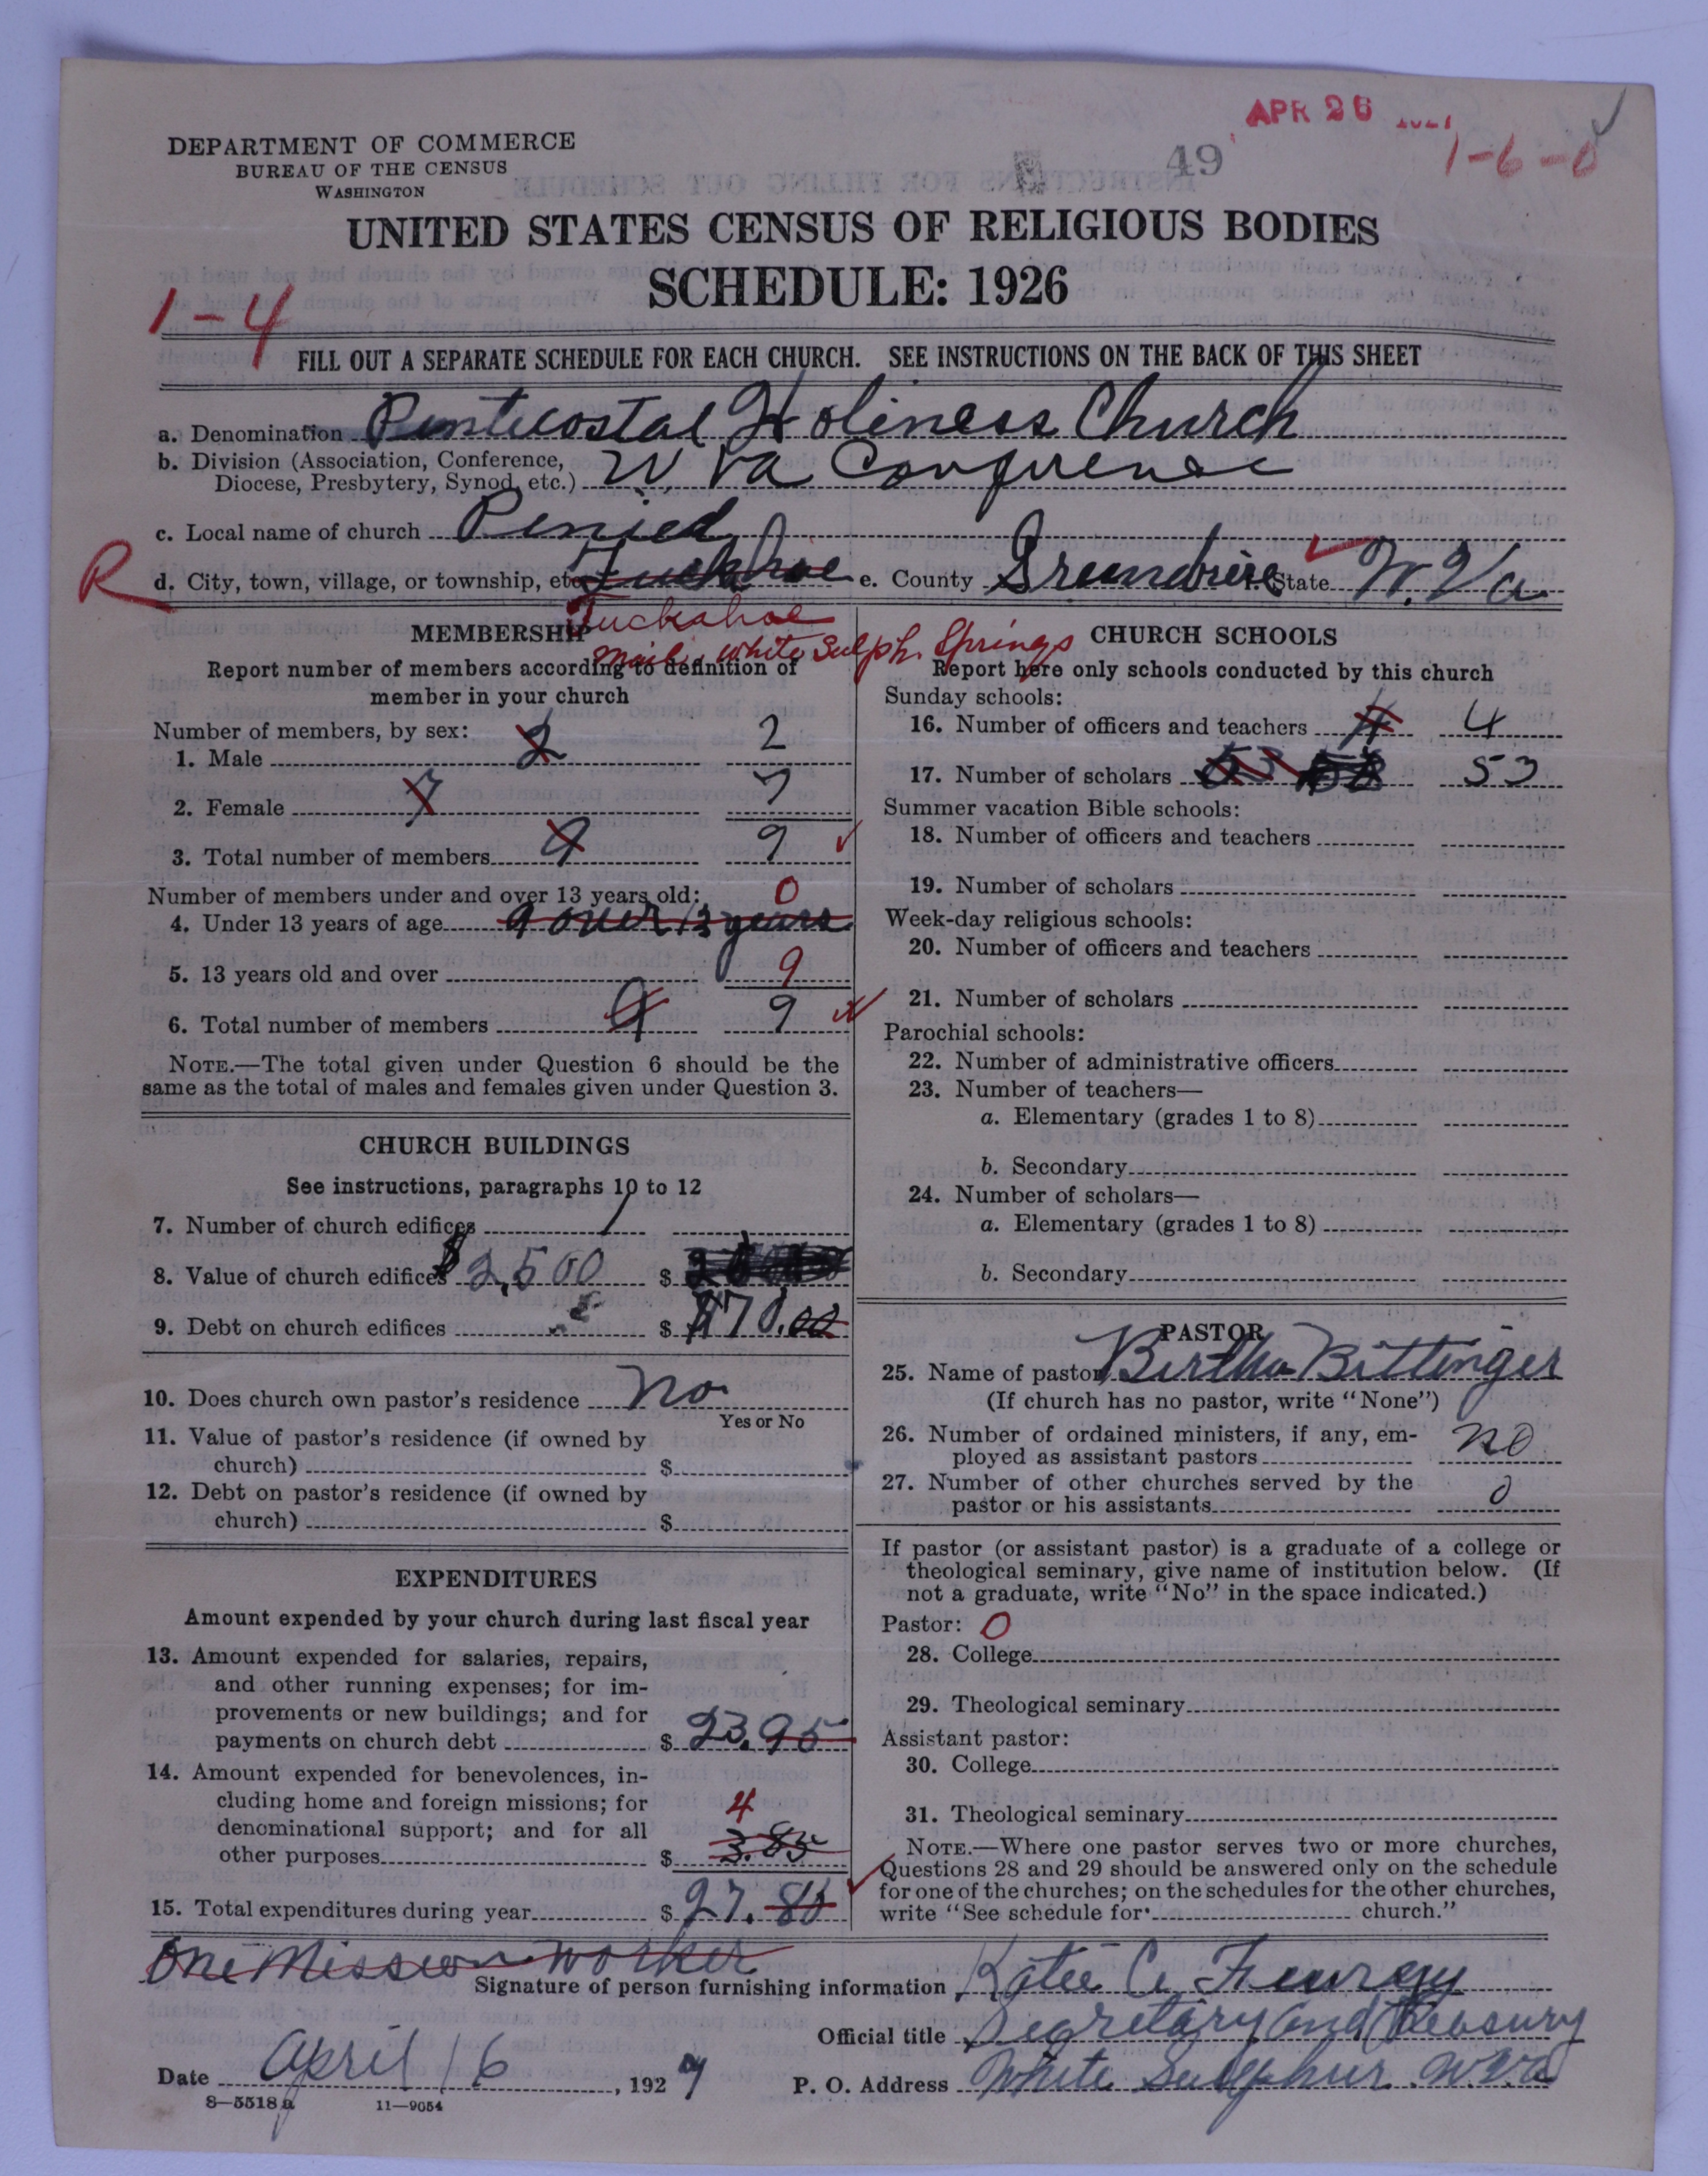 APR 26 1927
1-6-0
49
DEPARTMENT OF COMMERCE
BUREAU OF THE CENSUS
WASHINGTON
UNITED STATES CENSUS OF RELIGIOUS BODIES
SCHEDULE: 1926
1-4
FILL OUT A SEPARATE SCHEDULE FOR EACH CHURCH. SEE INSTRUCTIONS ON THE BACK OF THIS SHEET
a. Denomination Pentecostal Holiness Church
b. Division (Association, Conference, Diocese, Presbytery, Synod, etc.) W. Va Conference
c. Local name of church Peniel
R
d. City, town, village, or township, etc. Tuckahoe e. County Greenbrier f. State W. Va
Tuckahoe
mail: White Sulph. Springs
MEMBERSHIP
Report number of members according to definition of
member in your church
Number of members, by sex:
1. Male 2 2
2. Female 7 7
3. Total number of members 9 9
Number of members under and over 13 years old:
4. Under 13 years of age 9 over 13 years 0
5. 13 years old and over 9
6. Total number of members 9 9
NOTE.—The total given under Question 6 should be the
same as the total of males and females given under Question 3.
CHURCH BUILDINGS
See instructions, paragraphs 10 to 12
7. Number of church edifices 1
8. Value of church edifices $2,500 $
9. Debt on church edifices $ 170.00
10. Does church own pastor's residence no
Yes or No
11. Value of pastor's residence (if owned by
church) $
12. Debt on pastor's residence (if owned by
church) $
EXPENDITURES
Amount expended by your church during last fiscal year
13. Amount expended for salaries, repairs,
and other running expenses; for im-
provements or new buildings; and for
payments on church debt $ 23.95
14. Amount expended for benevolences, in-
cluding home and foreign missions; for
denominational support; and for all
other purposes $ 3.85
4
15. Total expenditures during year $ 27.80
CHURCH SCHOOLS
Report here only schools conducted by this church
Sunday schools:
16. Number of officers and teachers 4 4
17. Number of scholars 53 58 53
Summer vacation Bible schools:
18. Number of officers and teachers
19. Number of scholars
Week-day religious schools:
20. Number of officers and teachers
21. Number of scholars
Parochial schools:
22. Number of administrative officers
23. Number of teachers—
a. Elementary (grades 1 to 8)
b. Secondary
24. Number of scholars—
a. Elementary (grades 1 to 8)
b. Secondary
PASTOR
25. Name of pastor Bertha Bittinger
(If church has no pastor, write "None")
26. Number of ordained ministers, if any, em-
ployed as assistant pastors no
27. Number of other churches served by the
pastor or his assistants 0
If pastor (or assistant pastor) is a graduate of a college or
theological seminary, give name of institution below. (If
not a graduate, write "No" in the space indicated.)
Pastor: 0
28. College
29. Theological seminary
Assistant pastor:
30. College
31. Theological seminary
NOTE.—Where one pastor serves two or more churches,
Questions 28 and 29 should be answered only on the schedule
for one of the churches; on the schedules for the other churches,
write "See schedule for church."
One Mission worker
Signature of person furnishing information Katie C.
Official title Segretary and Treasury
Date April 16, 1927 P. O. Address White Sulphur W. Va
8-5518 a 11-9054